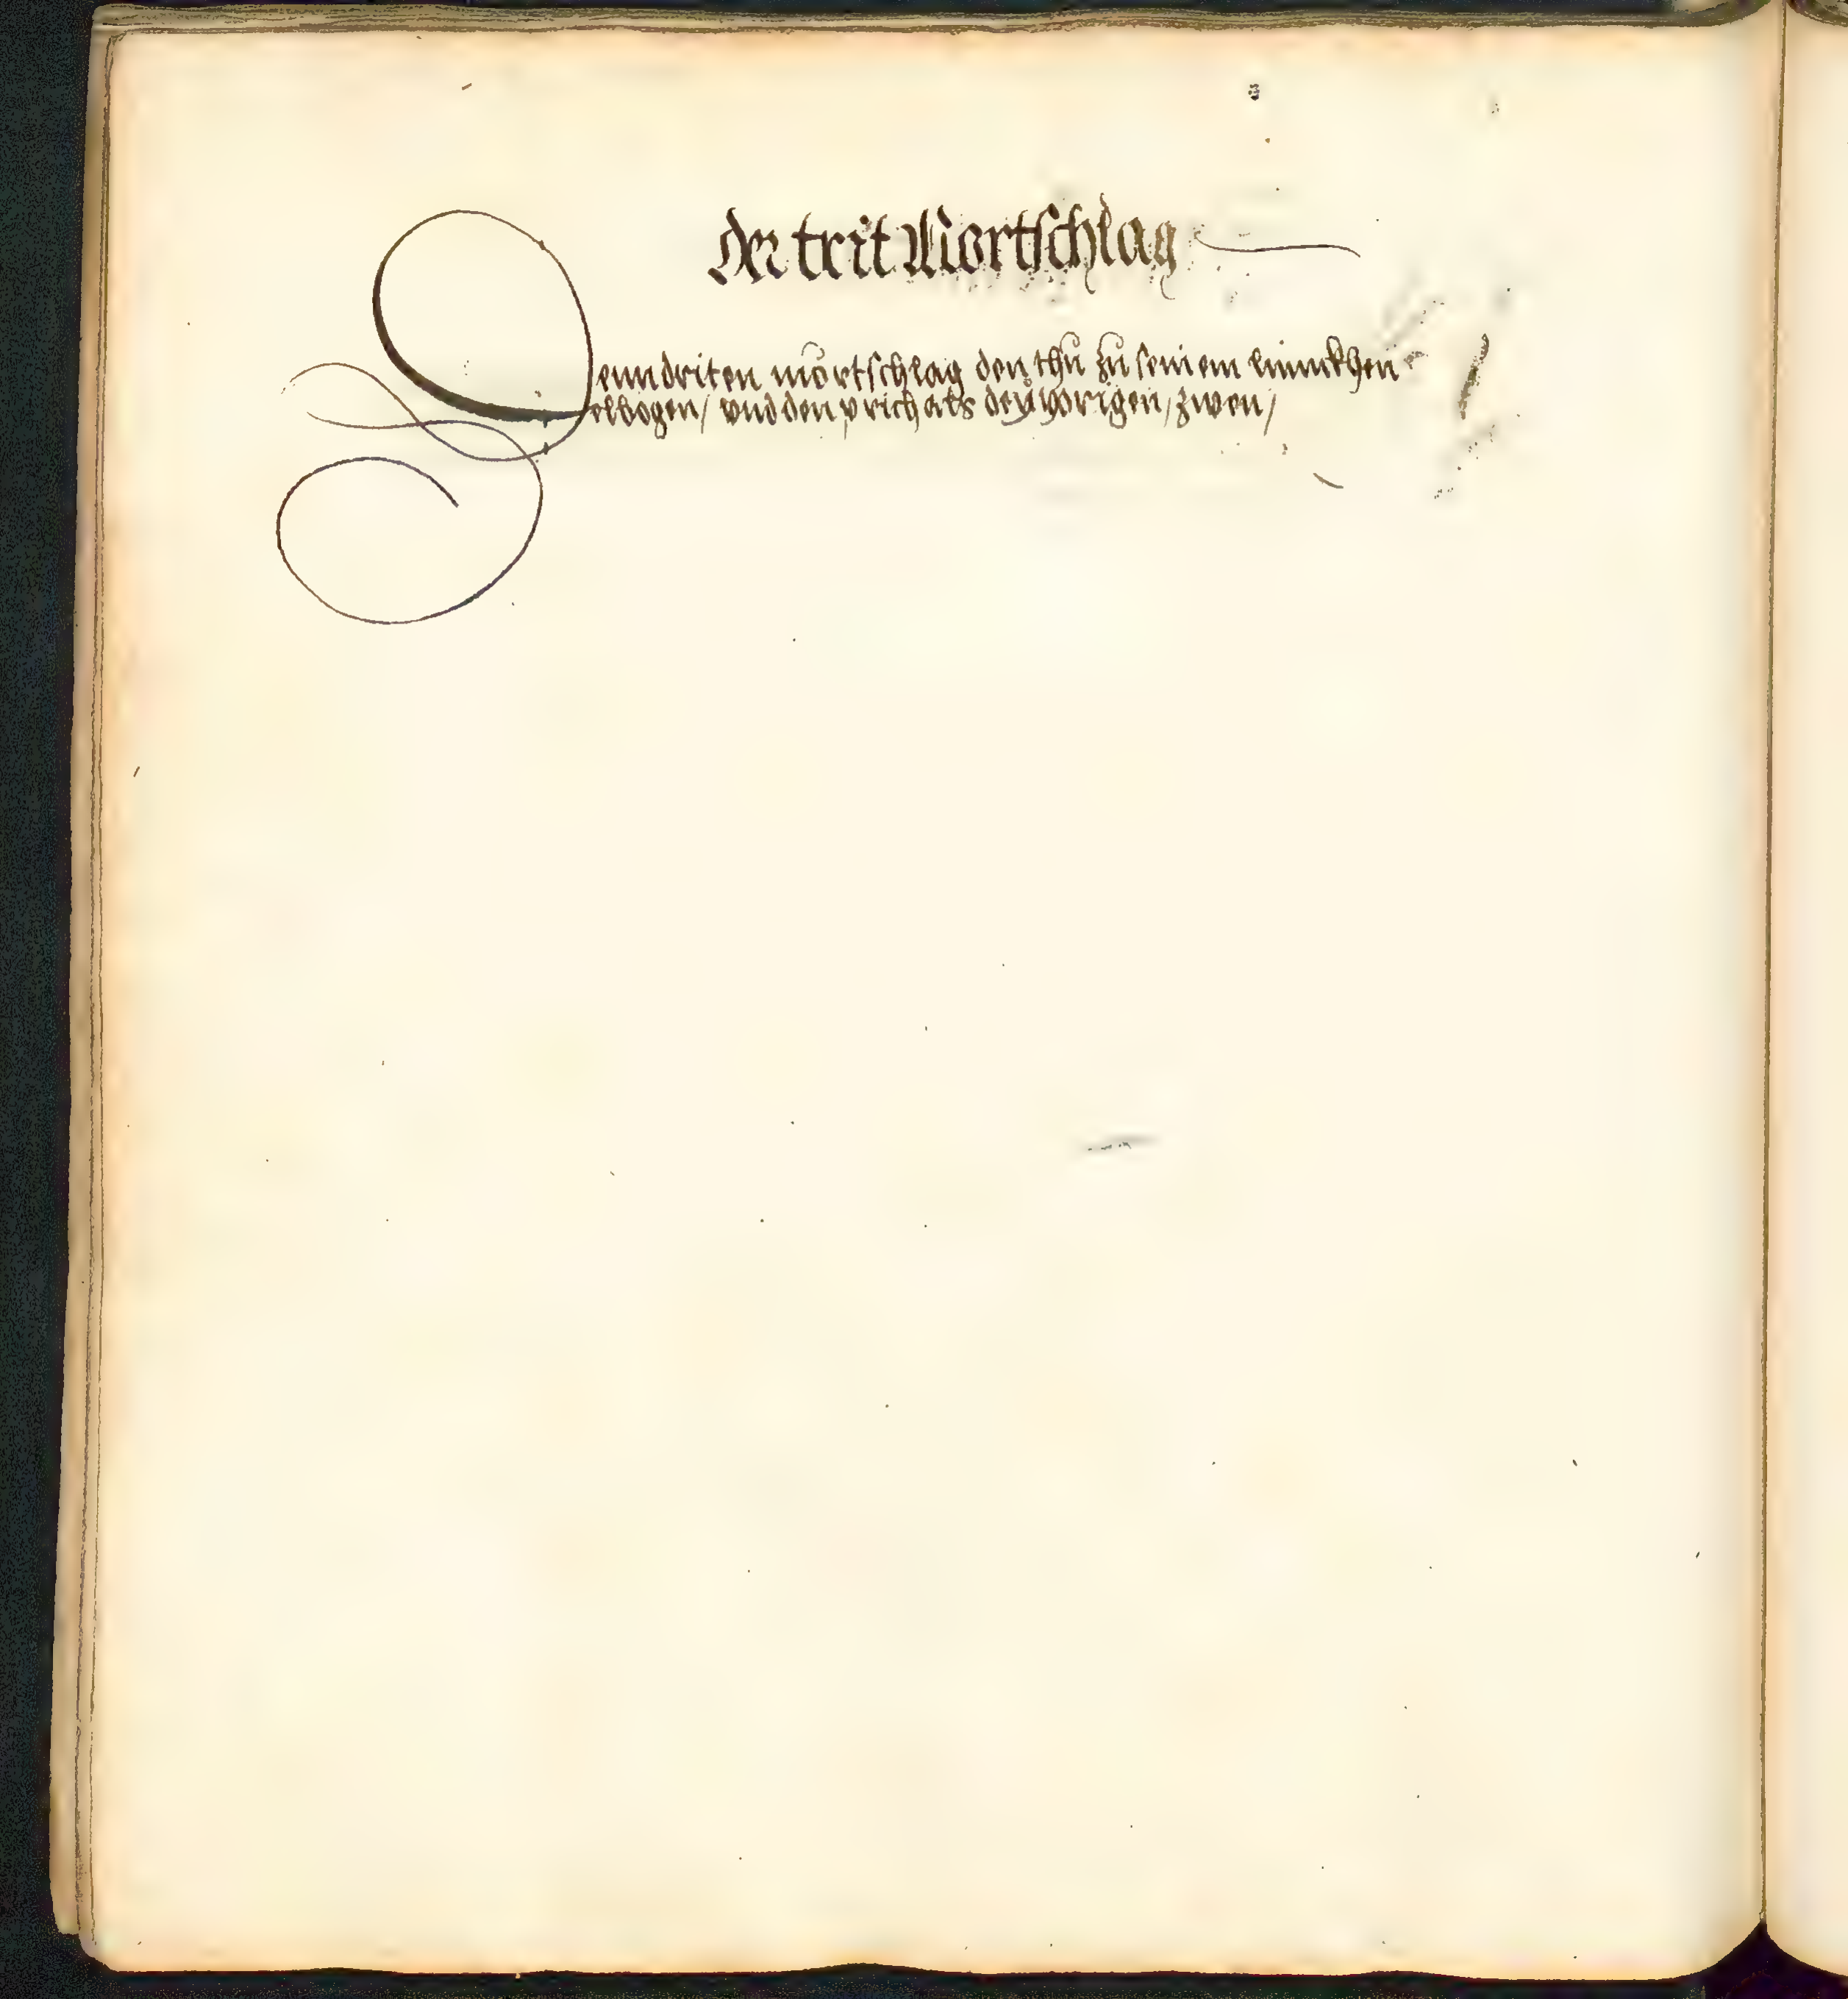 Der trit Mortschlag
Denn driten mortschlag den thů zů seinem linnckhen
elbogen / vnd den prich als den vorigen / zwen /